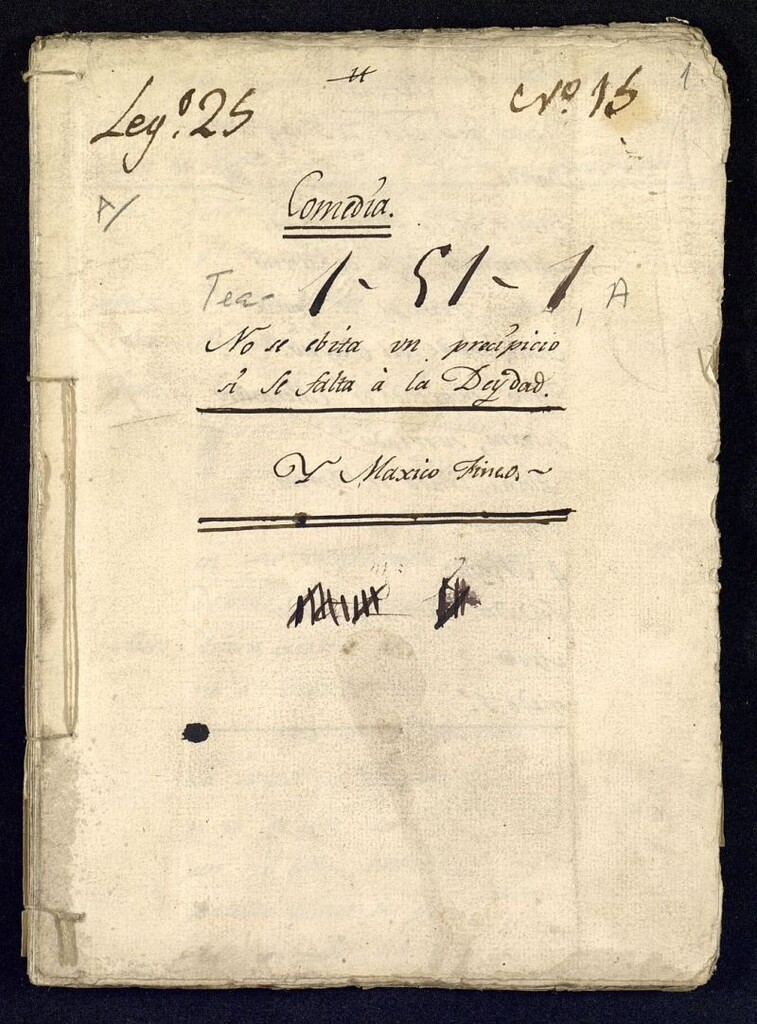 Leg.º 25
Nº 15
1.
A/
Comedia.
Tea- 1-51-1, A
No se ebita un precipicio
si se falta à la Deydad.
Y Maxico Finco.~